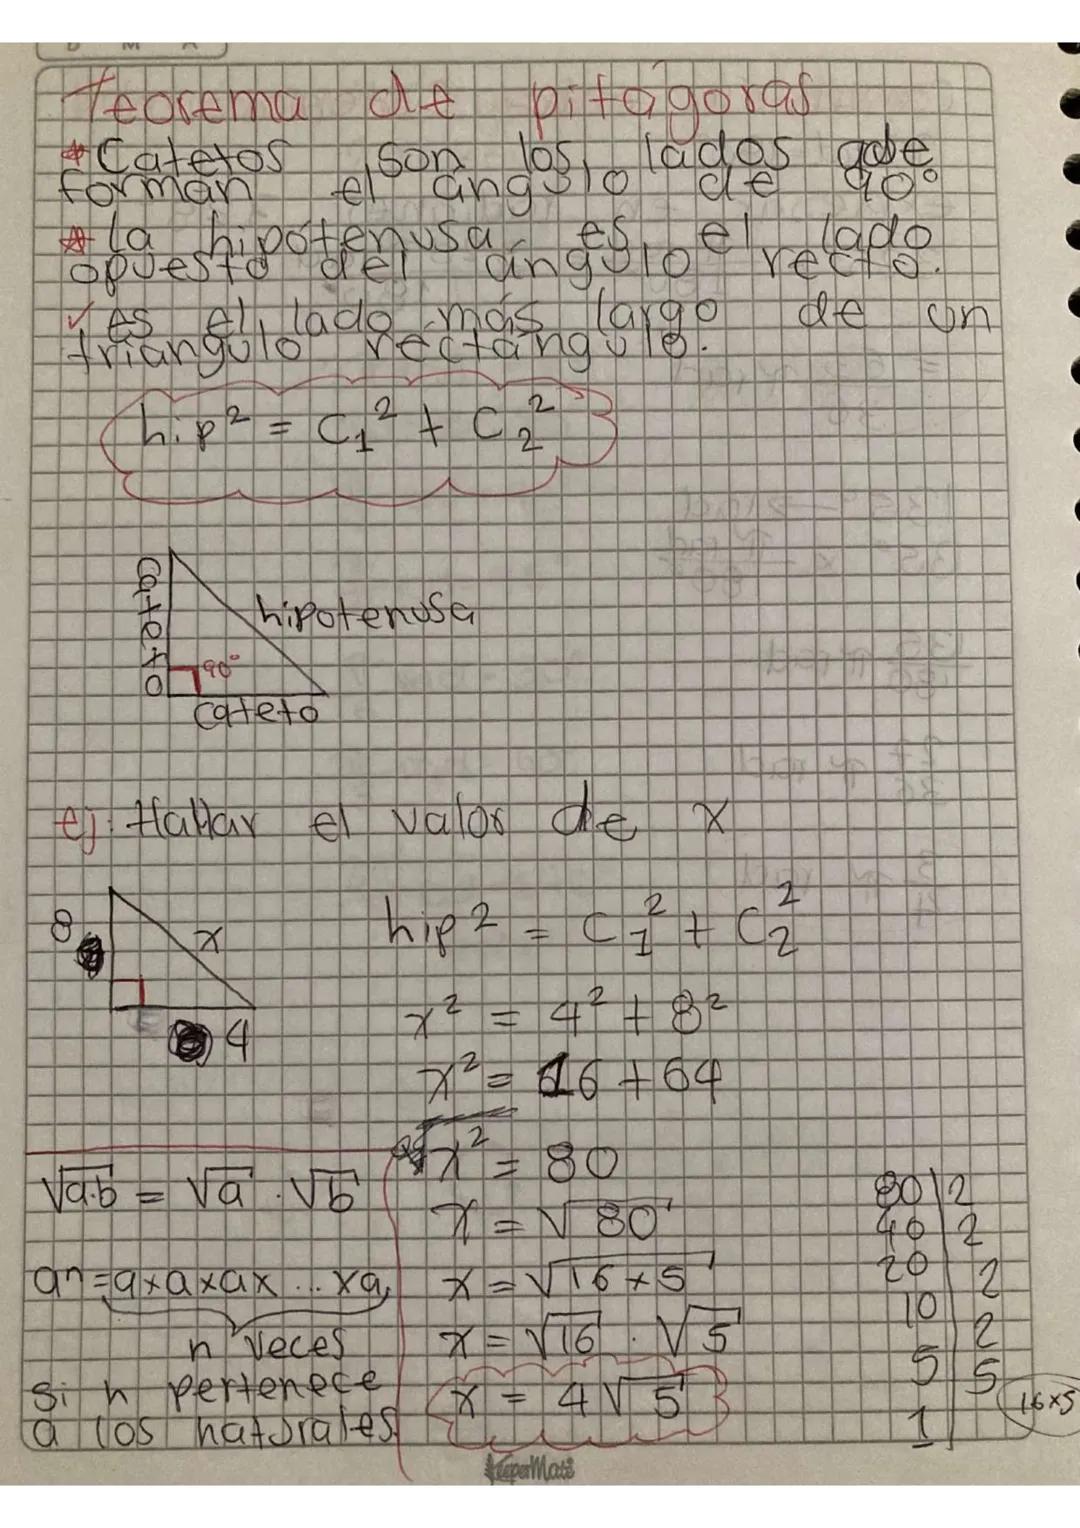 Teorema de pitagoras
* Catetos son los lados que
forman el ángulo de 90°
* la hipotenusa es el lado
opuesto del ángulo recto.
✓ es el lado más largo de un
triángulo rectángulo.
hip² = C₁² + C₂²
cateto
hipotenusa
90°
cateto
ej: Hallar el valor de x
8
x
4
hip² = C₁² + C₂²
x² = 4² + 8²
x² = 16 + 64
√x² = 80
x = √80
x = √16×5
x = √16 · √5
x = 4√5
√a·b = √a · √b
an = a×a×ax ... xa
n veces
si n pertenece
a los naturales
80|2
40|2
20|2
10|2
5|5
1|
16×5
KeeperMate